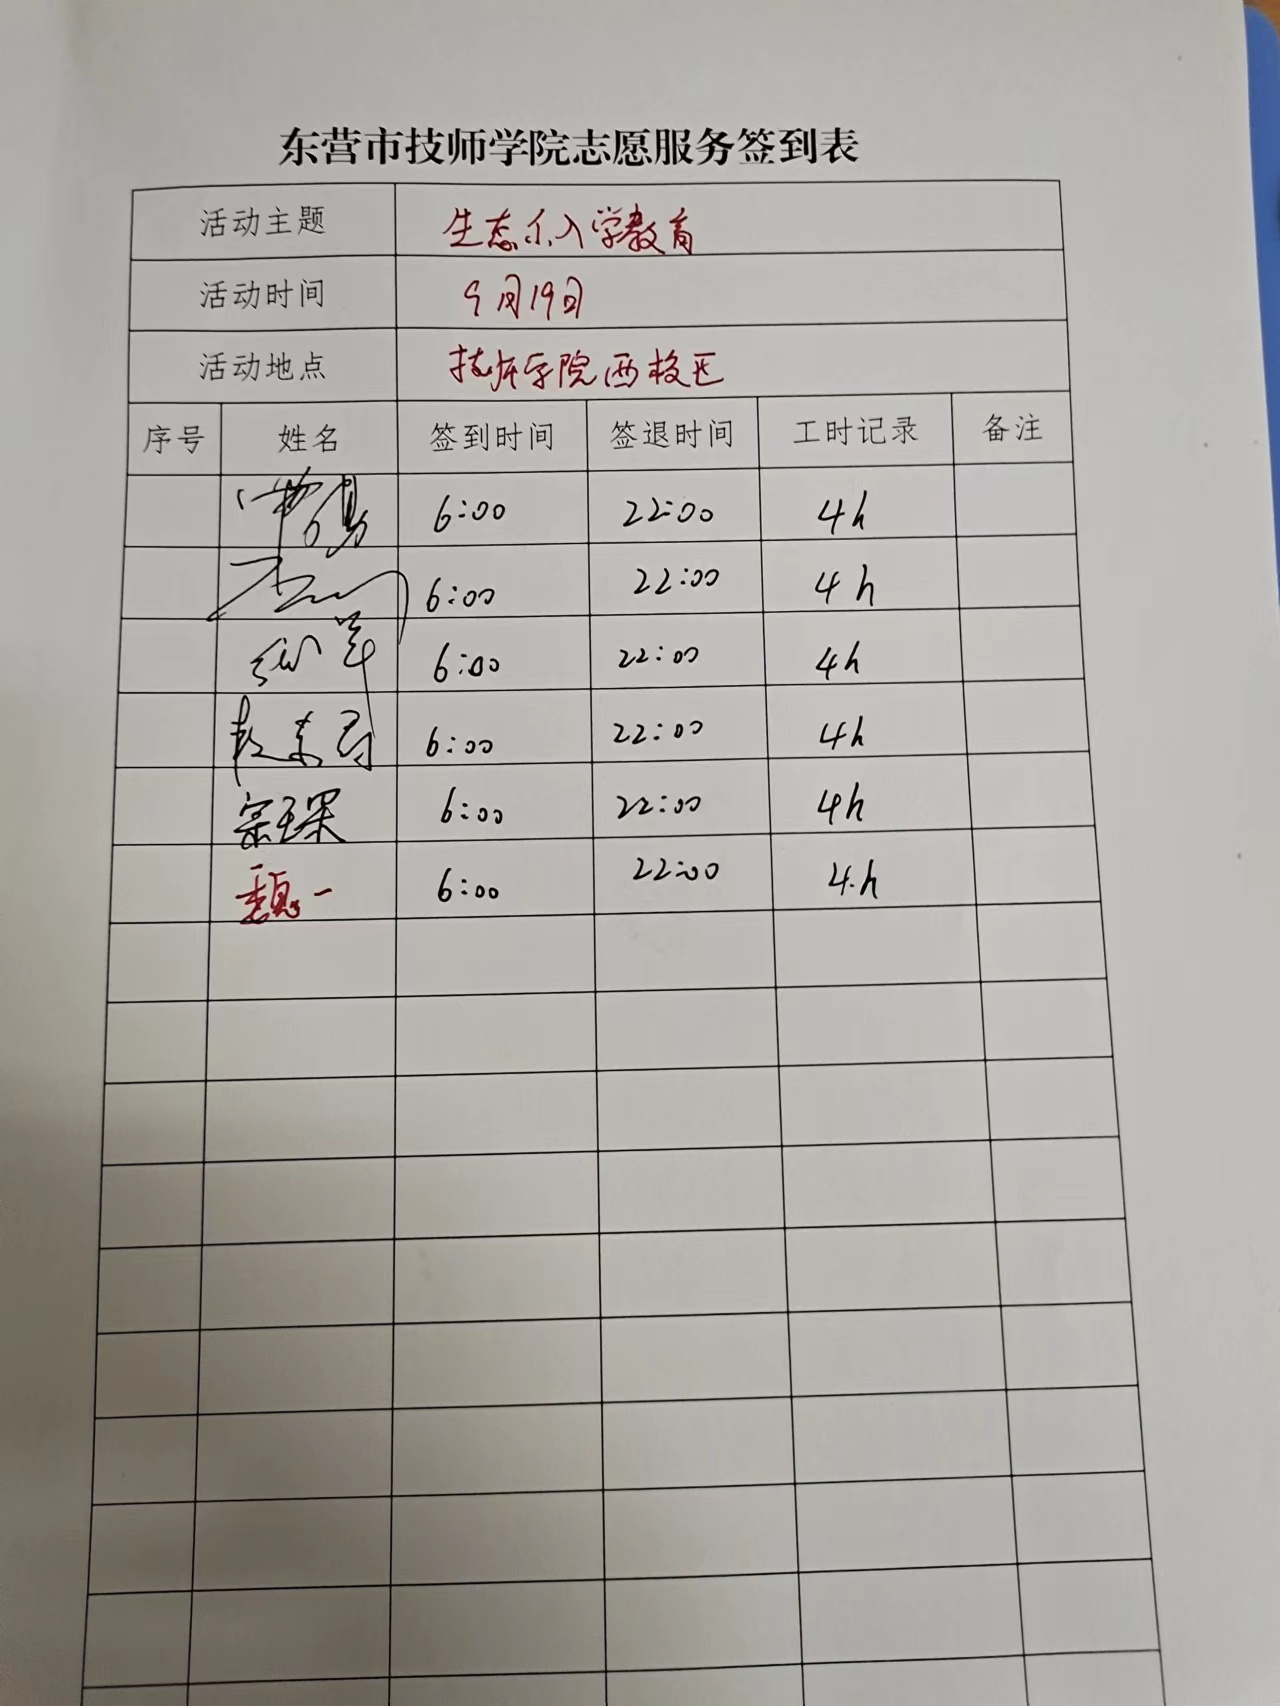 东营市技师学院志愿服务签到表
活动主题 生态系入学教育
活动时间 9月19日
活动地点 技师学院西校区
序号 姓名 签到时间 签退时间 工时记录 备注
6:00 22:00 4h
6:00 22:00 4h
6:00 22:00 4h
6:00 22:00 4h
6:00 22:00 4h
6:00 22:00 4h